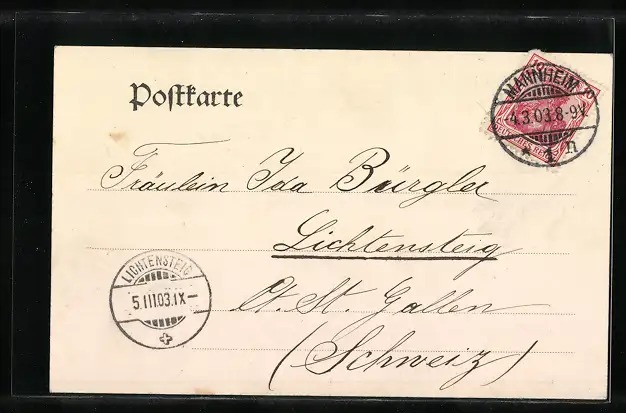 Postkarte
MANNHEIM
-4.3.03.8-9V.
* 1 n
10 10
DEUTSCHES REICH
Fräulein Ida Bürgler
Lichtensteig
Ct. St. Gallen
(Schweiz)
LICHTENSTEIG
5.III.03.IX–